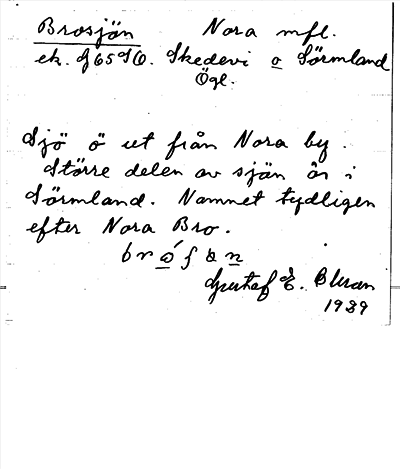 Brosjön Nora mfl.
ek. J65SO. Skedevi o Sörmland
Ögl.
Sjö ö ut från Nora by.
Större delen av sjön är i
Sörmland. Namnet tydligen
efter Nora Bro.
Gustaf E.
1939